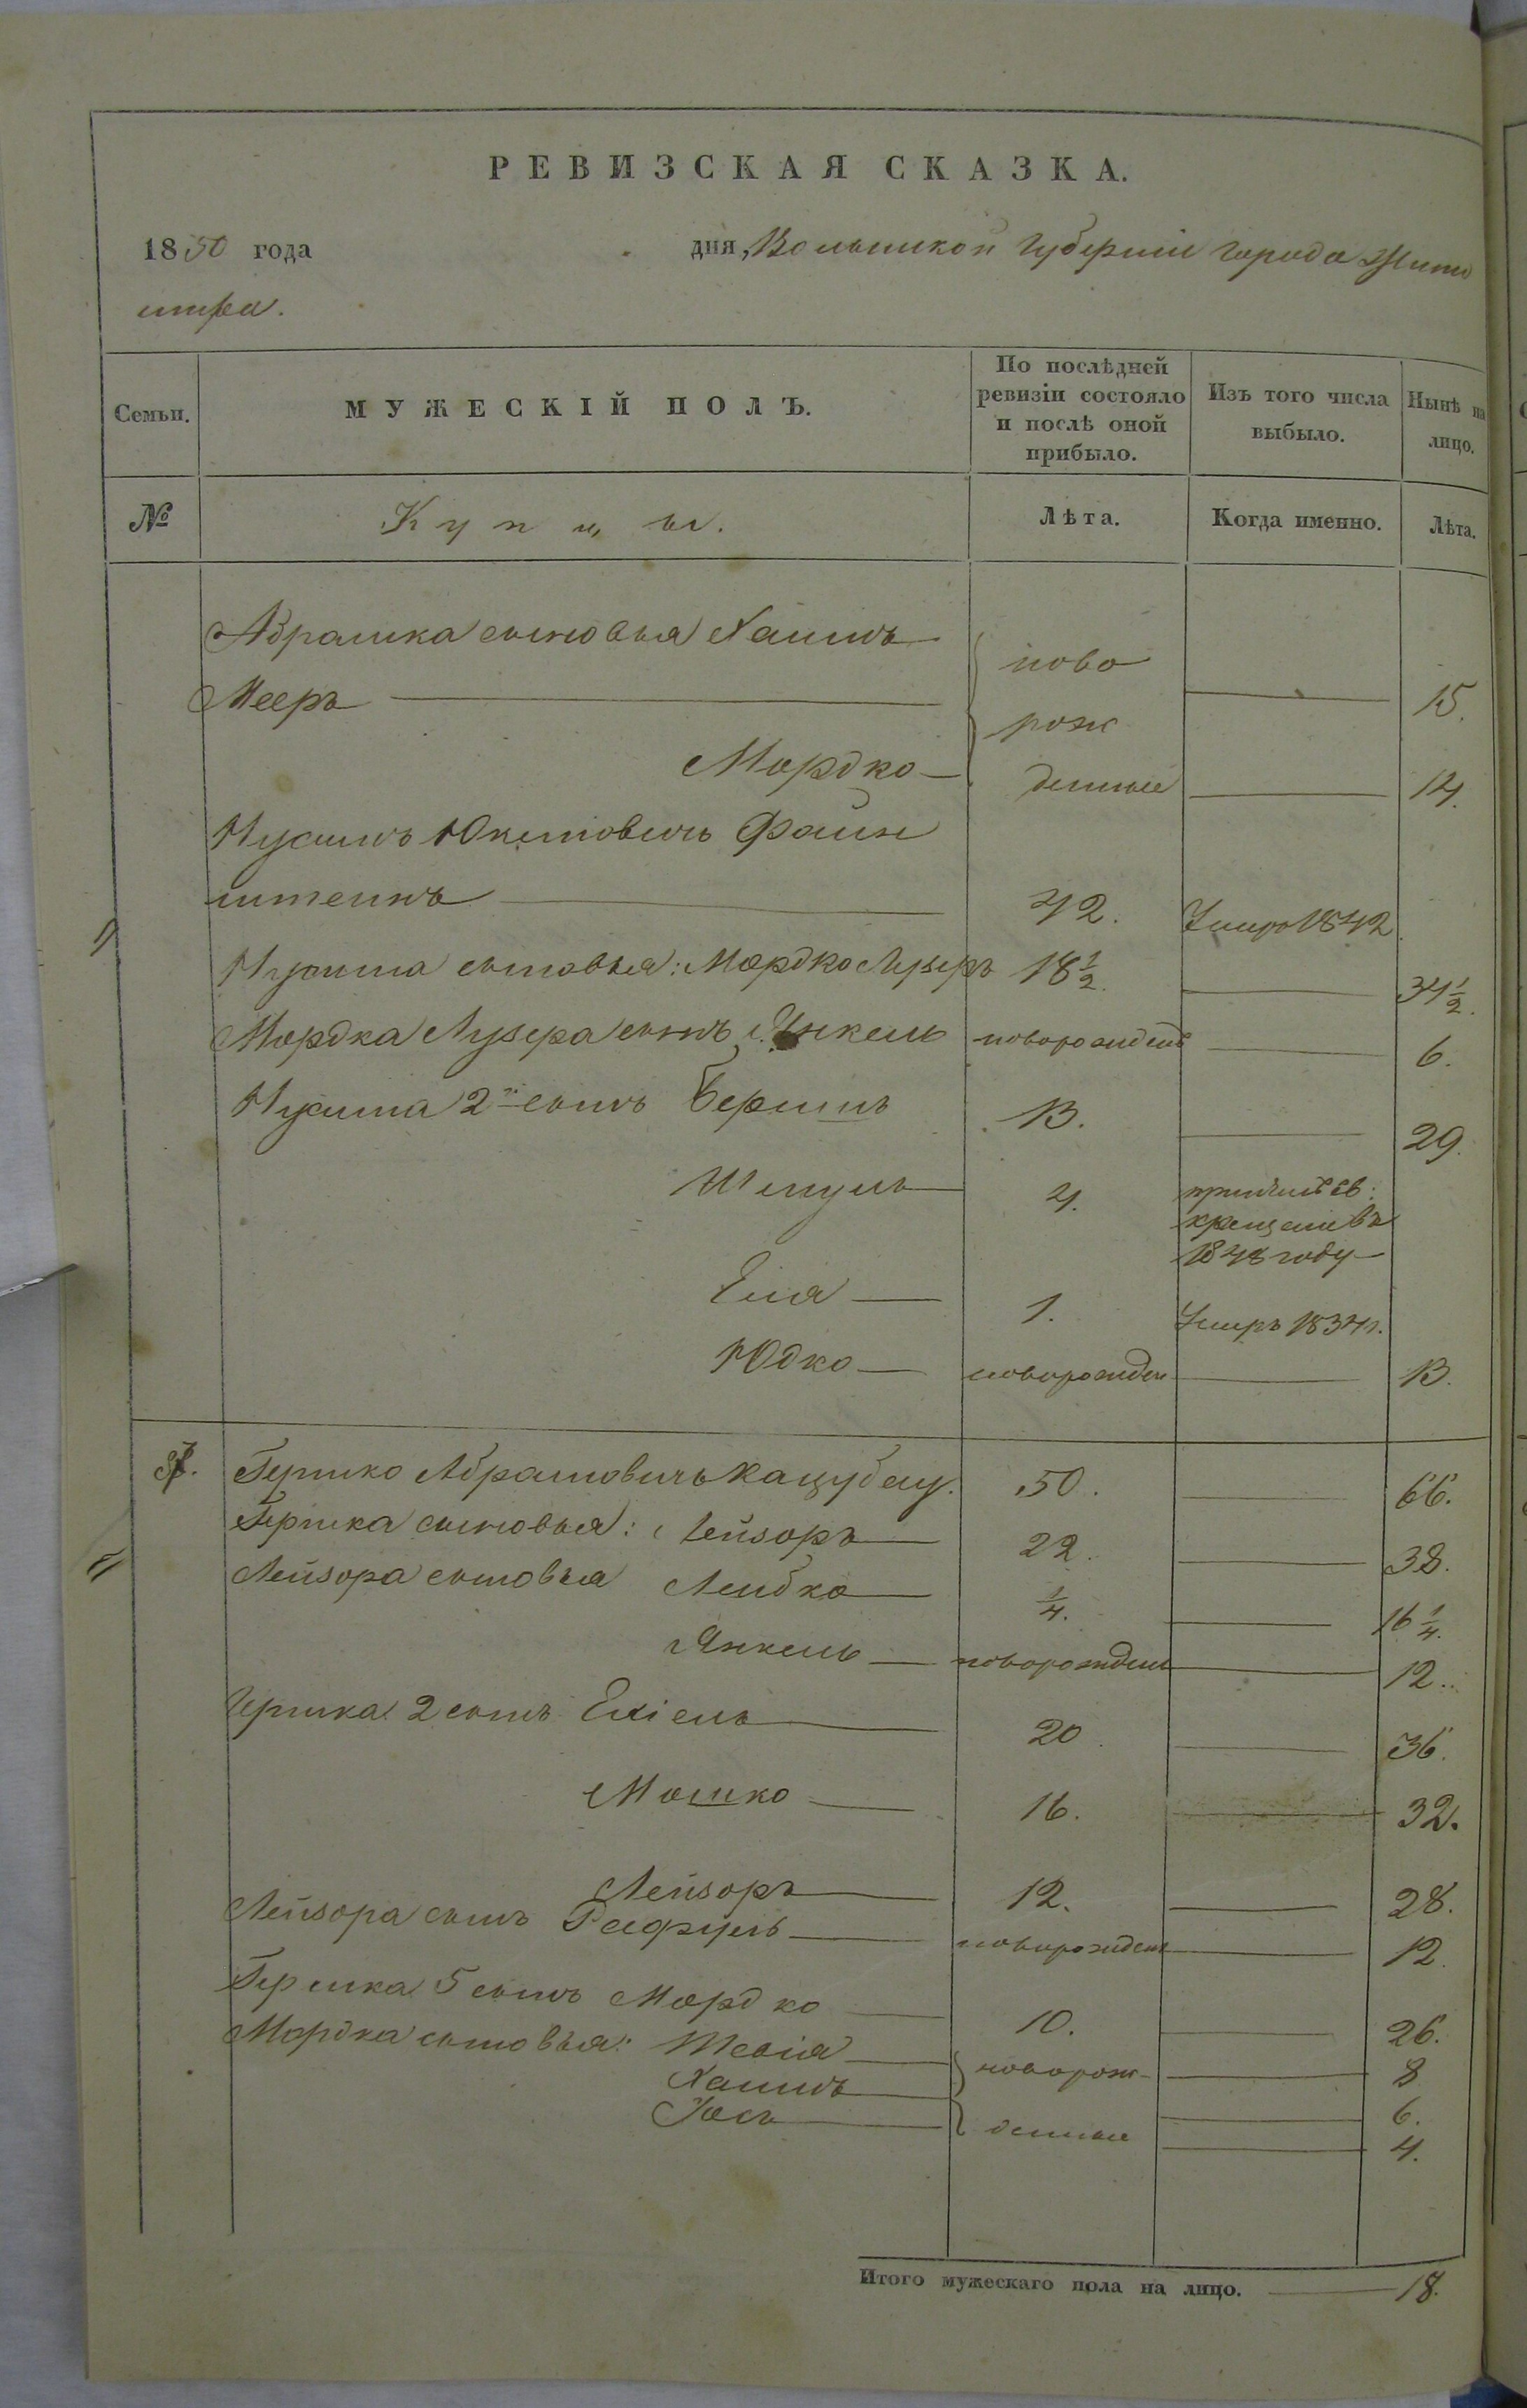 РЕВИЗСКАЯ СКАЗКА.
1850 года дня, Волынской Губерніи города Жито
мира.
Семьи. МУЖЕСКІЙ ПОЛЪ. По послѣдней ревизіи состояло и послѣ оной прибыло. Изъ того числа выбыло. Нынѣ на лицо.
№ Купцы. Лѣта. Когда именно. Лѣта.
Абрамка сыновья Хаимъ
Мееръ ново 15.
рож
Мордко денные 14.
Нусимъ Юкетовичъ Фаин
штеинъ 42. Умеръ 1842
Нусима сыновья: Мордко Лузеръ 18 1/2. 34 1/2.
Мордка Лузера сынъ Янкель новорожденъ 6.
Нусима 2й сынъ Бершъ 13. 29.
Шмуль 4. принялъ св:
крещеніе въ
1848 году
Еля 1. Умеръ 1834 г.
Юдко новорожден 13.
Гершко Абрамовичъ Кацубей. 50. 66.
Гершка сыновья: Лейзоръ 22. 38.
Лейзора сыновья Лейбко 1/4. 16 1/4.
Янкель новорожден 12.
Гершка 2 сынъ Ехіель 20. 36.
Мошко 16. 32.
Лейзоръ 12. 28.
Лейзора сынъ Рафуль новорожден 12.
Гершка 5 сынъ Мордко 10. 26.
Мордка сыновья: новорож- 8
Хаимъ 6.
Іосъ денные 4.
Итого мужескаго пола на лицо. 18.